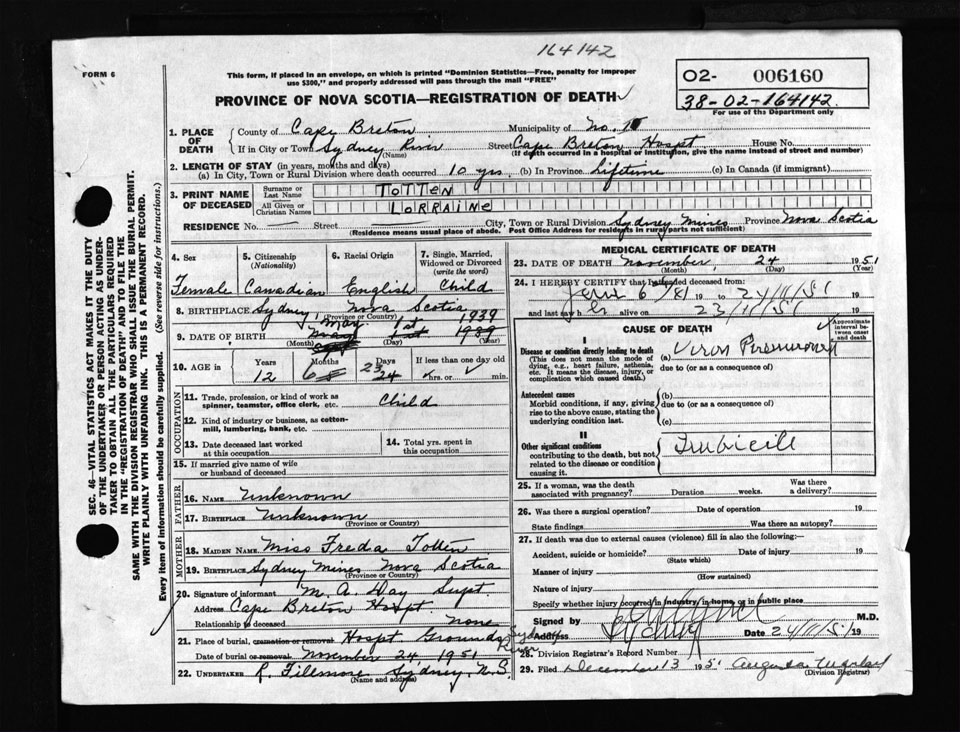 164142
FORM 6
This form, if placed in an envelope, on which is printed "Dominion Statistics—Free, penalty for improper
use $300," and properly addressed will pass through the mail "FREE"
PROVINCE OF NOVA SCOTIA—REGISTRATION OF DEATH
O2- 006160
38-02-164142
For use of the Department only
SEC. 46—VITAL STATISTICS ACT MAKES IT THE DUTY
OF THE UNDERTAKER OR PERSON ACTING AS UNDER-
TAKER TO OBTAIN ALL THE PARTICULARS REQUIRED
IN THE "REGISTRATION OF DEATH" AND TO FILE THE
SAME WITH THE DIVISION REGISTRAR WHO SHALL ISSUE THE BURIAL PERMIT.
WRITE PLAINLY WITH UNFADING INK. THIS IS A PERMANENT RECORD.
Every item of information should be carefully supplied. (See reverse side for instructions.)
1. PLACE OF DEATH County of Cape Breton Municipality of No.
If in City or Town Sydney River Street Cape Breton Hospt House No.
(Name) (If death occurred in a hospital or institution, give the name instead of street and number)
2. LENGTH OF STAY (in years, months and days)
(a) In City, Town or Rural Division where death occurred 10 yrs. (b) In Province Lifetime (c) In Canada (if immigrant)
3. PRINT NAME OF DECEASED Surname or Last Name TOTTEN
All Given or Christian Names LORRAINE
RESIDENCE No. — Street City, Town or Rural Division Sydney Mines Province Nova Scotia
(Residence means usual place of abode. Post Office Address for residents in rural parts not sufficient)
4. Sex 5. Citizenship (Nationality) 6. Racial Origin 7. Single, Married, Widowed or Divorced (write the word)
Female Canadian English Child
8. BIRTHPLACE Sydney, Nova Scotia
(Province or Country)
May 1st 1939
9. DATE OF BIRTH May 1st 1939
(Month) (Day) (Year)
10. AGE in Years Months Days If less than one day old
12 6 23 24 hrs. or min.
OCCUPATION
11. Trade, profession, or kind of work as
spinner, teamster, office clerk, etc. Child
12. Kind of industry or business, as cotton-
mill, lumbering, bank, etc.
13. Date deceased last worked
at this occupation
14. Total yrs. spent in
this occupation
15. If married give name of wife
or husband of deceased
FATHER
16. NAME Unknown
17. BIRTHPLACE Unknown
(Province or Country)
MOTHER
18. MAIDEN NAME Miss Freda Totten
19. BIRTHPLACE Sydney Mines Nova Scotia
(Province or Country)
20. Signature of informant M. A. Day Supt.
Address Cape Breton Hospt.
Relationship to deceased none
21. Place of burial, cremation or removal Hospt Grounds Sydney River
Date of burial or removal November 24, 1951
22. UNDERTAKER R. Fillmore Sydney, N.S.
(Name and address)
MEDICAL CERTIFICATE OF DEATH
23. DATE OF DEATH November, 24 1951
(Month) (Day) (Year)
24. I HEREBY CERTIFY that I attended deceased from:
19 to 24/11/51 19
and last saw her alive on 23/11/51 19
CAUSE OF DEATH
Approximate interval between onset and death
I
Disease or condition directly leading to death
(This does not mean the mode of
dying, e.g., heart failure, asthenia,
etc. It means the disease, injury, or
complication which caused death.)
(a) Virus Pneumonia
due to (or as a consequence of)
Antecedent causes
Morbid conditions, if any, giving
rise to the above cause, stating the
underlying condition last.
(b)
due to (or as a consequence of)
(c)
II
Other significant conditions
contributing to the death, but not
related to the disease or condition
causing it.
Imbicile
25. If a woman, was the death
associated with pregnancy? Duration weeks. Was there a delivery?
26. Was there a surgical operation? Date of operation 19
State findings Was there an autopsy?
27. If death was due to external causes (violence) fill in also the following:—
Accident, suicide or homicide? Date of injury 19
(State which)
Manner of injury
(How sustained)
Nature of injury
Specify whether injury occurred in industry, in home, or in public place
Signed by M.D.
Address Sydney Date 24/11/51 19
28. Division Registrar's Record Number
29. Filed December 13 1951 Augusta
(Division Registrar)